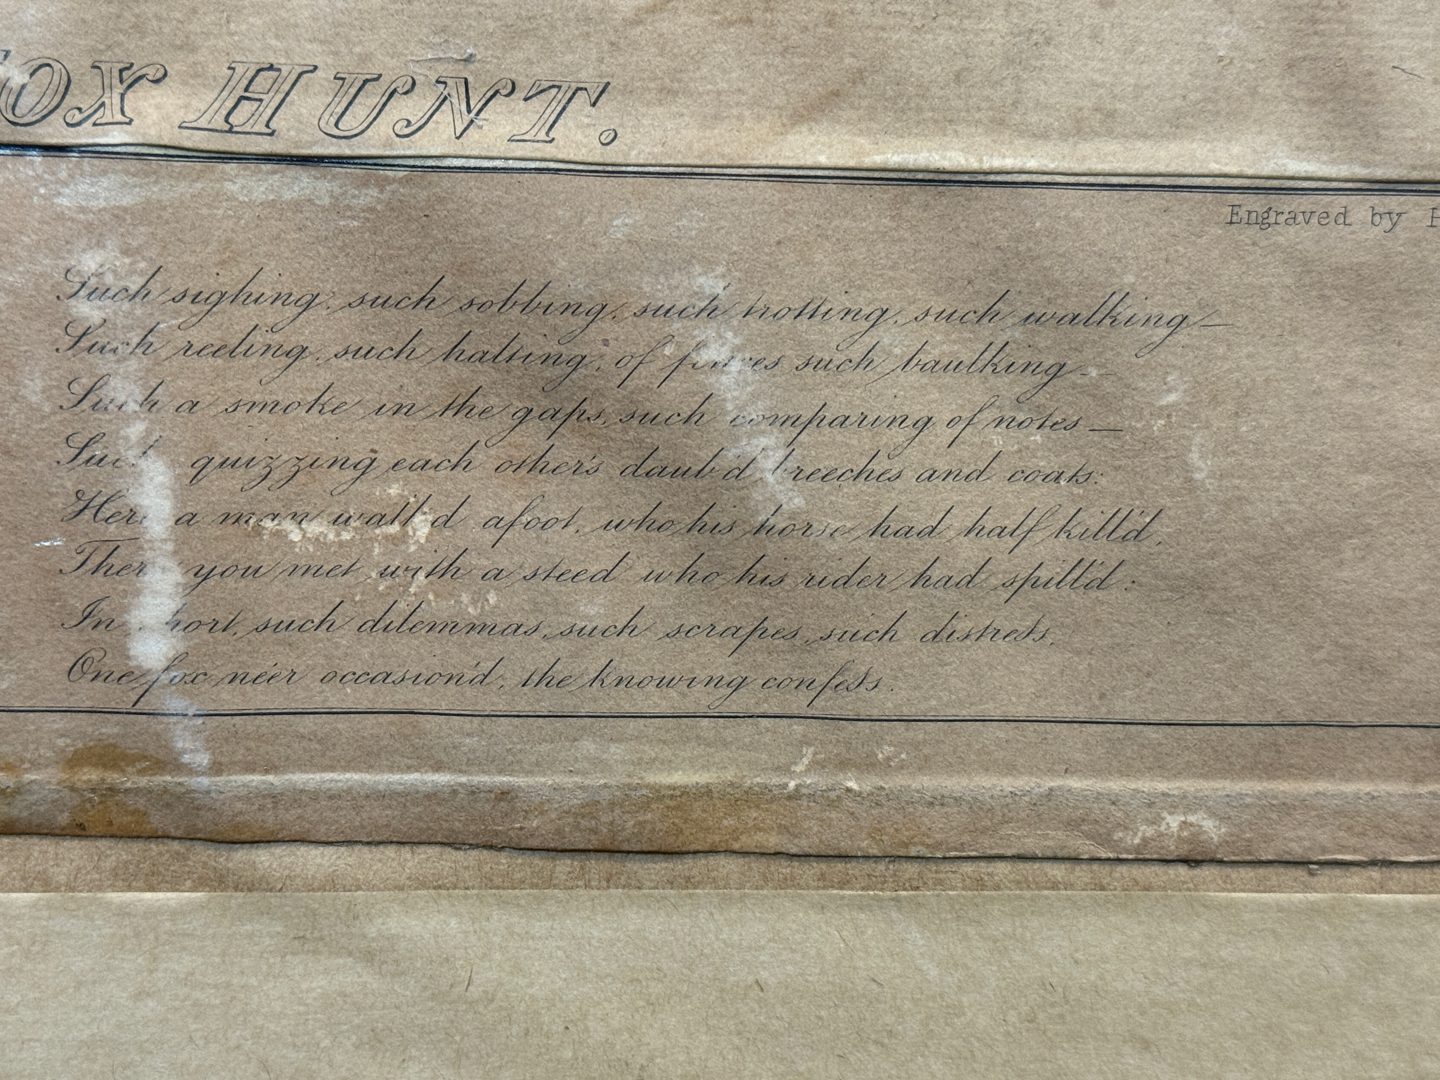 OX HUNT.
Engraved by
Such sighing, such sobbing, such trotting, such walking—
Such reeling, such halting, of fences such baulking—
Such a smoke in the gaps, such comparing of notes—
Such quizzing each other's daub'd breeches and coats:
Here a man walk'd afoot, who his horse had half kill'd,
There you met with a steed who his rider had spill'd:
In short, such dilemmas, such scrapes, such distress,
One fox ne'er occasion'd, the knowing confess.